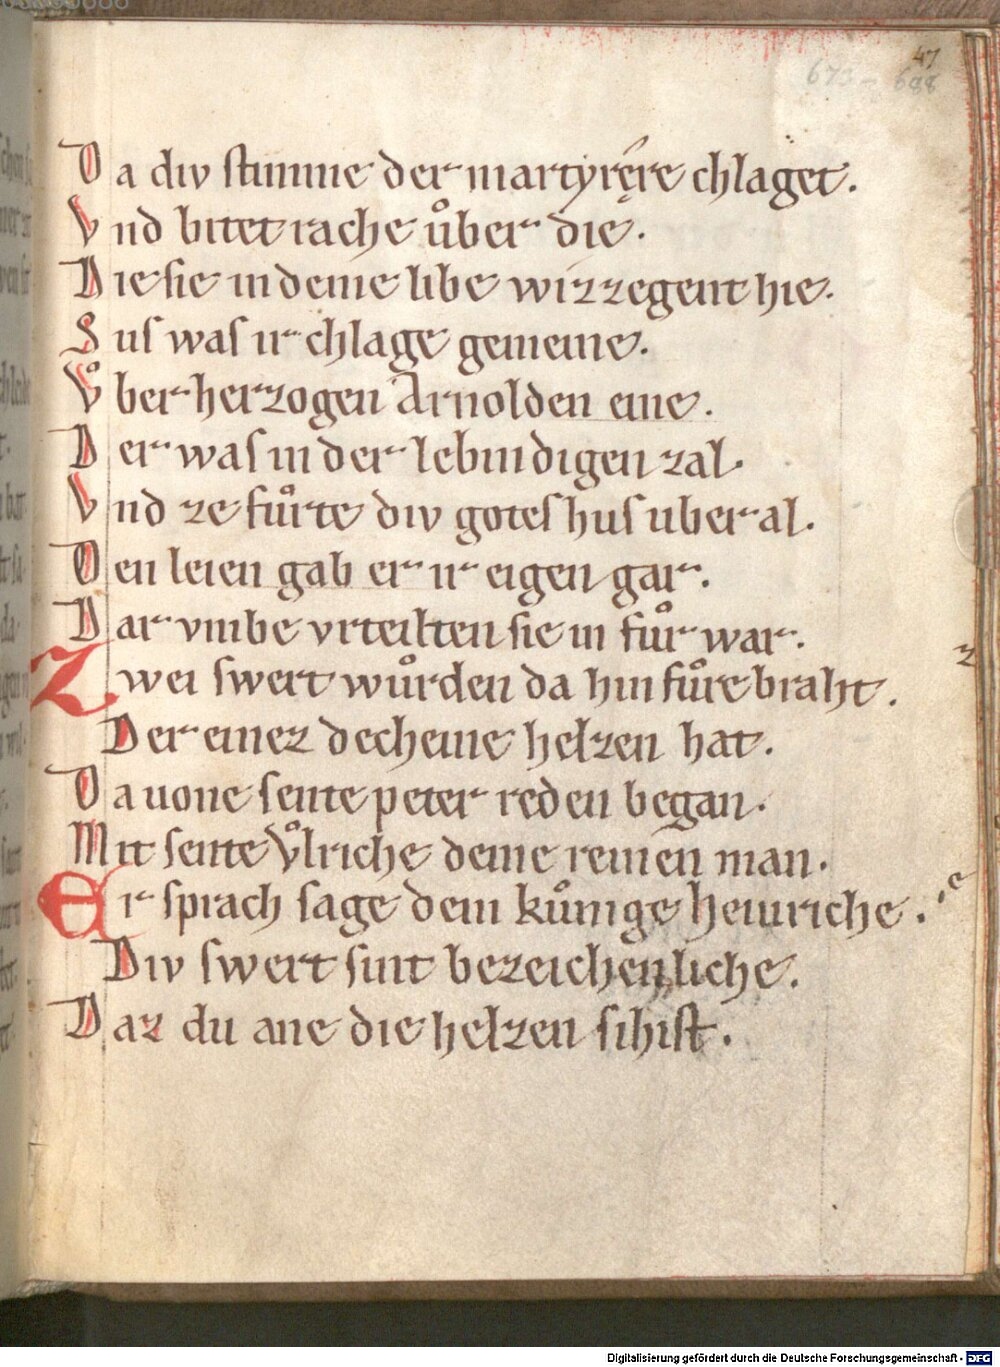 47
673 – 688
Da div stimme der martyręre chlaget.
Vnd bitet rache uͦber die.
Die sie in deme libe wizzegent hie.
Sus was ir chlage gemeine.
Vͦber herzogen Arnolden eine.
Der was in der lebindigen zal.
Vnd ze fuͦrte div gotes hus uber al.
Den leien gab er ir eigen gar.
Dar vmbe vrteilten sie in fuͦr war.
Zwei swert wuͦrden da hin fuͦre braht.
Der einez decheine helzen hat.
Da uone sente peter reden began.
Mit sente Vͦlriche deme reinen man.
Er sprach sage dem kuͦnige heinriche.
Div swert sint bezeichenliche.
Daz du ane die helzen sihist.
Digitalisierung gefördert durch die Deutsche Forschungsgemeinschaft - DFG